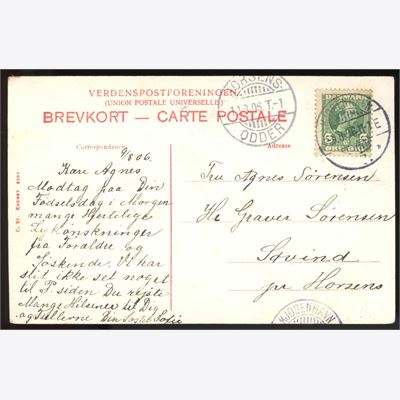 VERDENSPOSTFORENINGEN
(UNION POSTALE UNIVERSELLE)
BREVKORT — CARTE POSTALE
HORSENS
11.2.06 T-1
ODDER
DANMARK
5
ØRE
Correspondance.
Adresse
9/8 06.
Kære Agnes
Modtag paa Din
Fødselsdag i Morgen
mange Hjertelige
Lykønskninger
fra Forældre og
Søskende. Vi har
slet ikke set noget
til P. siden Du rejste
Mange Hilsener til Dig
og Din Søster Sofie
Fru Agnes Sørensen
Hr Graver Sørensen
Søvind
pr Horsens
KJØBENHAVN
C. St. Eneret